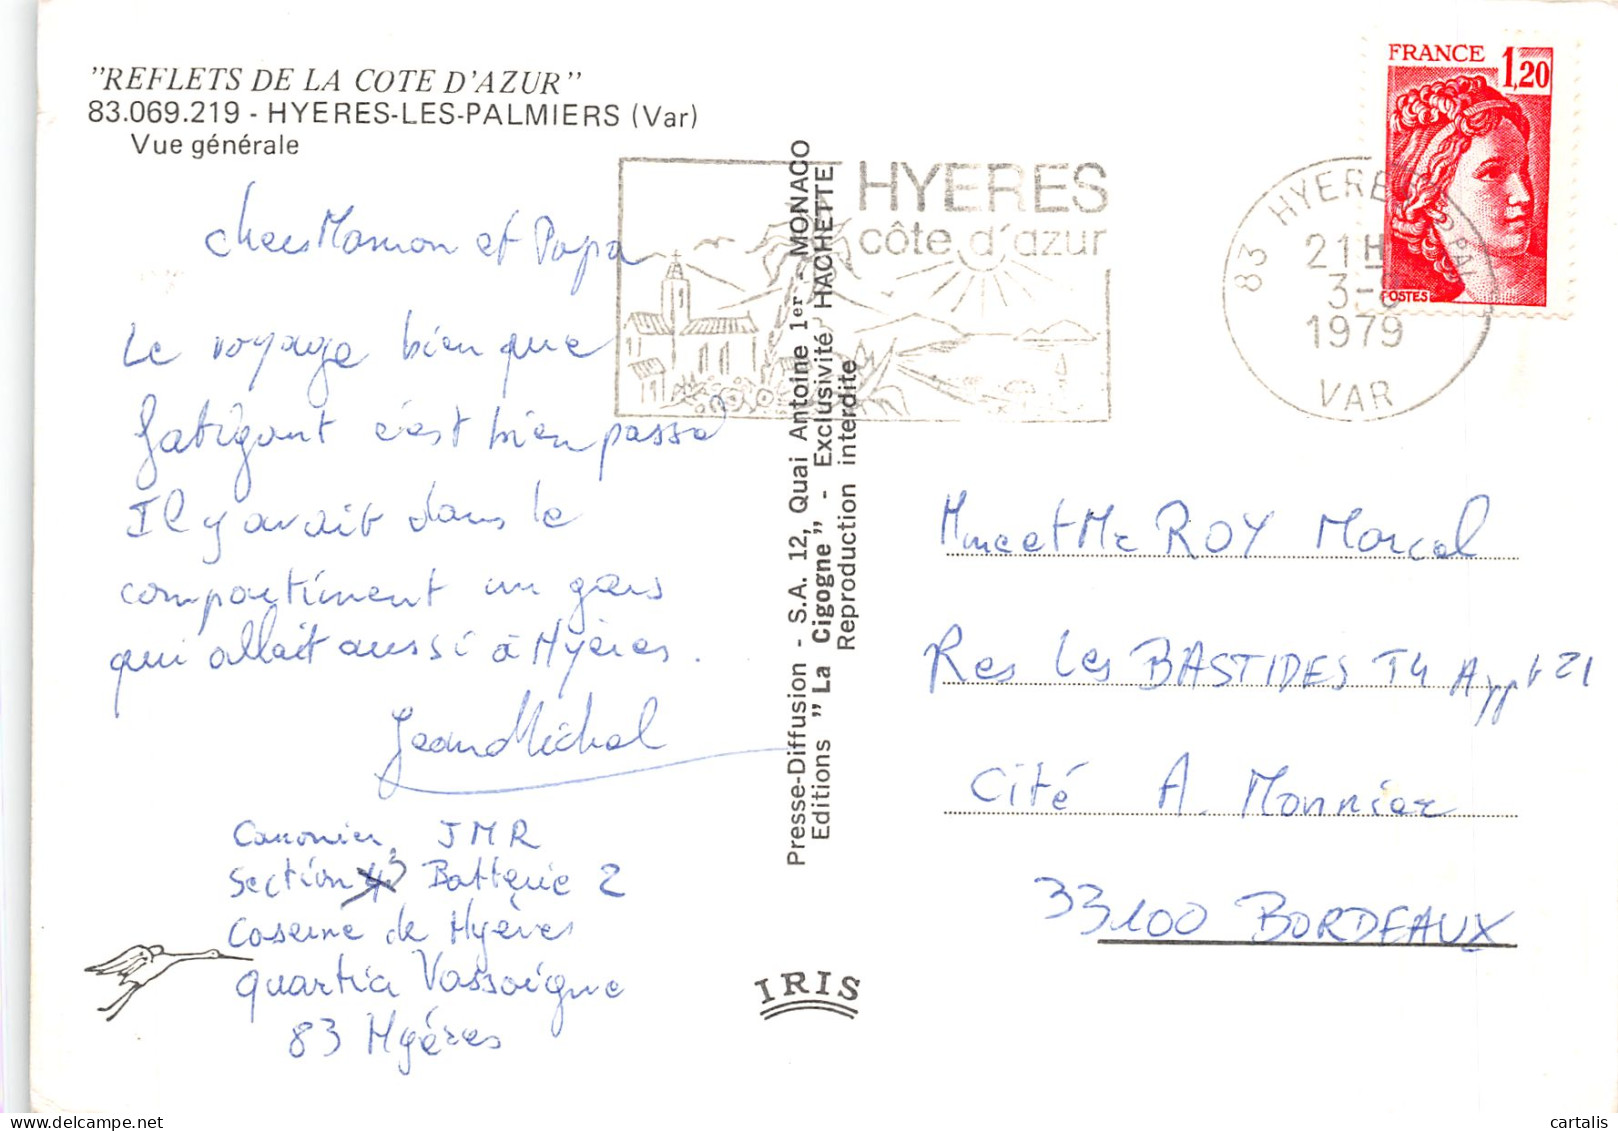 "REFLETS DE LA COTE D'AZUR"
83.069.219 - HYERES-LES-PALMIERS (Var)
Vue générale
chers Maman et Papa
Le voyage bien que
fatigant c'est bien passé
Il y avait dans le
compartiment un gars
qui allait aussi à Hyères.
Jean Michel
Canonier JMR
Section 3 Batterie 2
Caserne de Hyères
quartier Vassoigne
83 Hyéres
Presse-Diffusion - S.A. 12, Quai Antoine 1er - MONACO
Editions "La Cigogne" - Exclusivité HACHETTE
Reproduction interdite
IRIS
HYERES
côte d'azur
83 HYERES PPAL
21H
3-
1979
VAR
FRANCE 1,20
POSTES
Mme et Mr ROY Marcel
Res Les BASTIDES T4 Appt 21
Cité A. Monnier
33100 BORDEAUX
cartalis.com